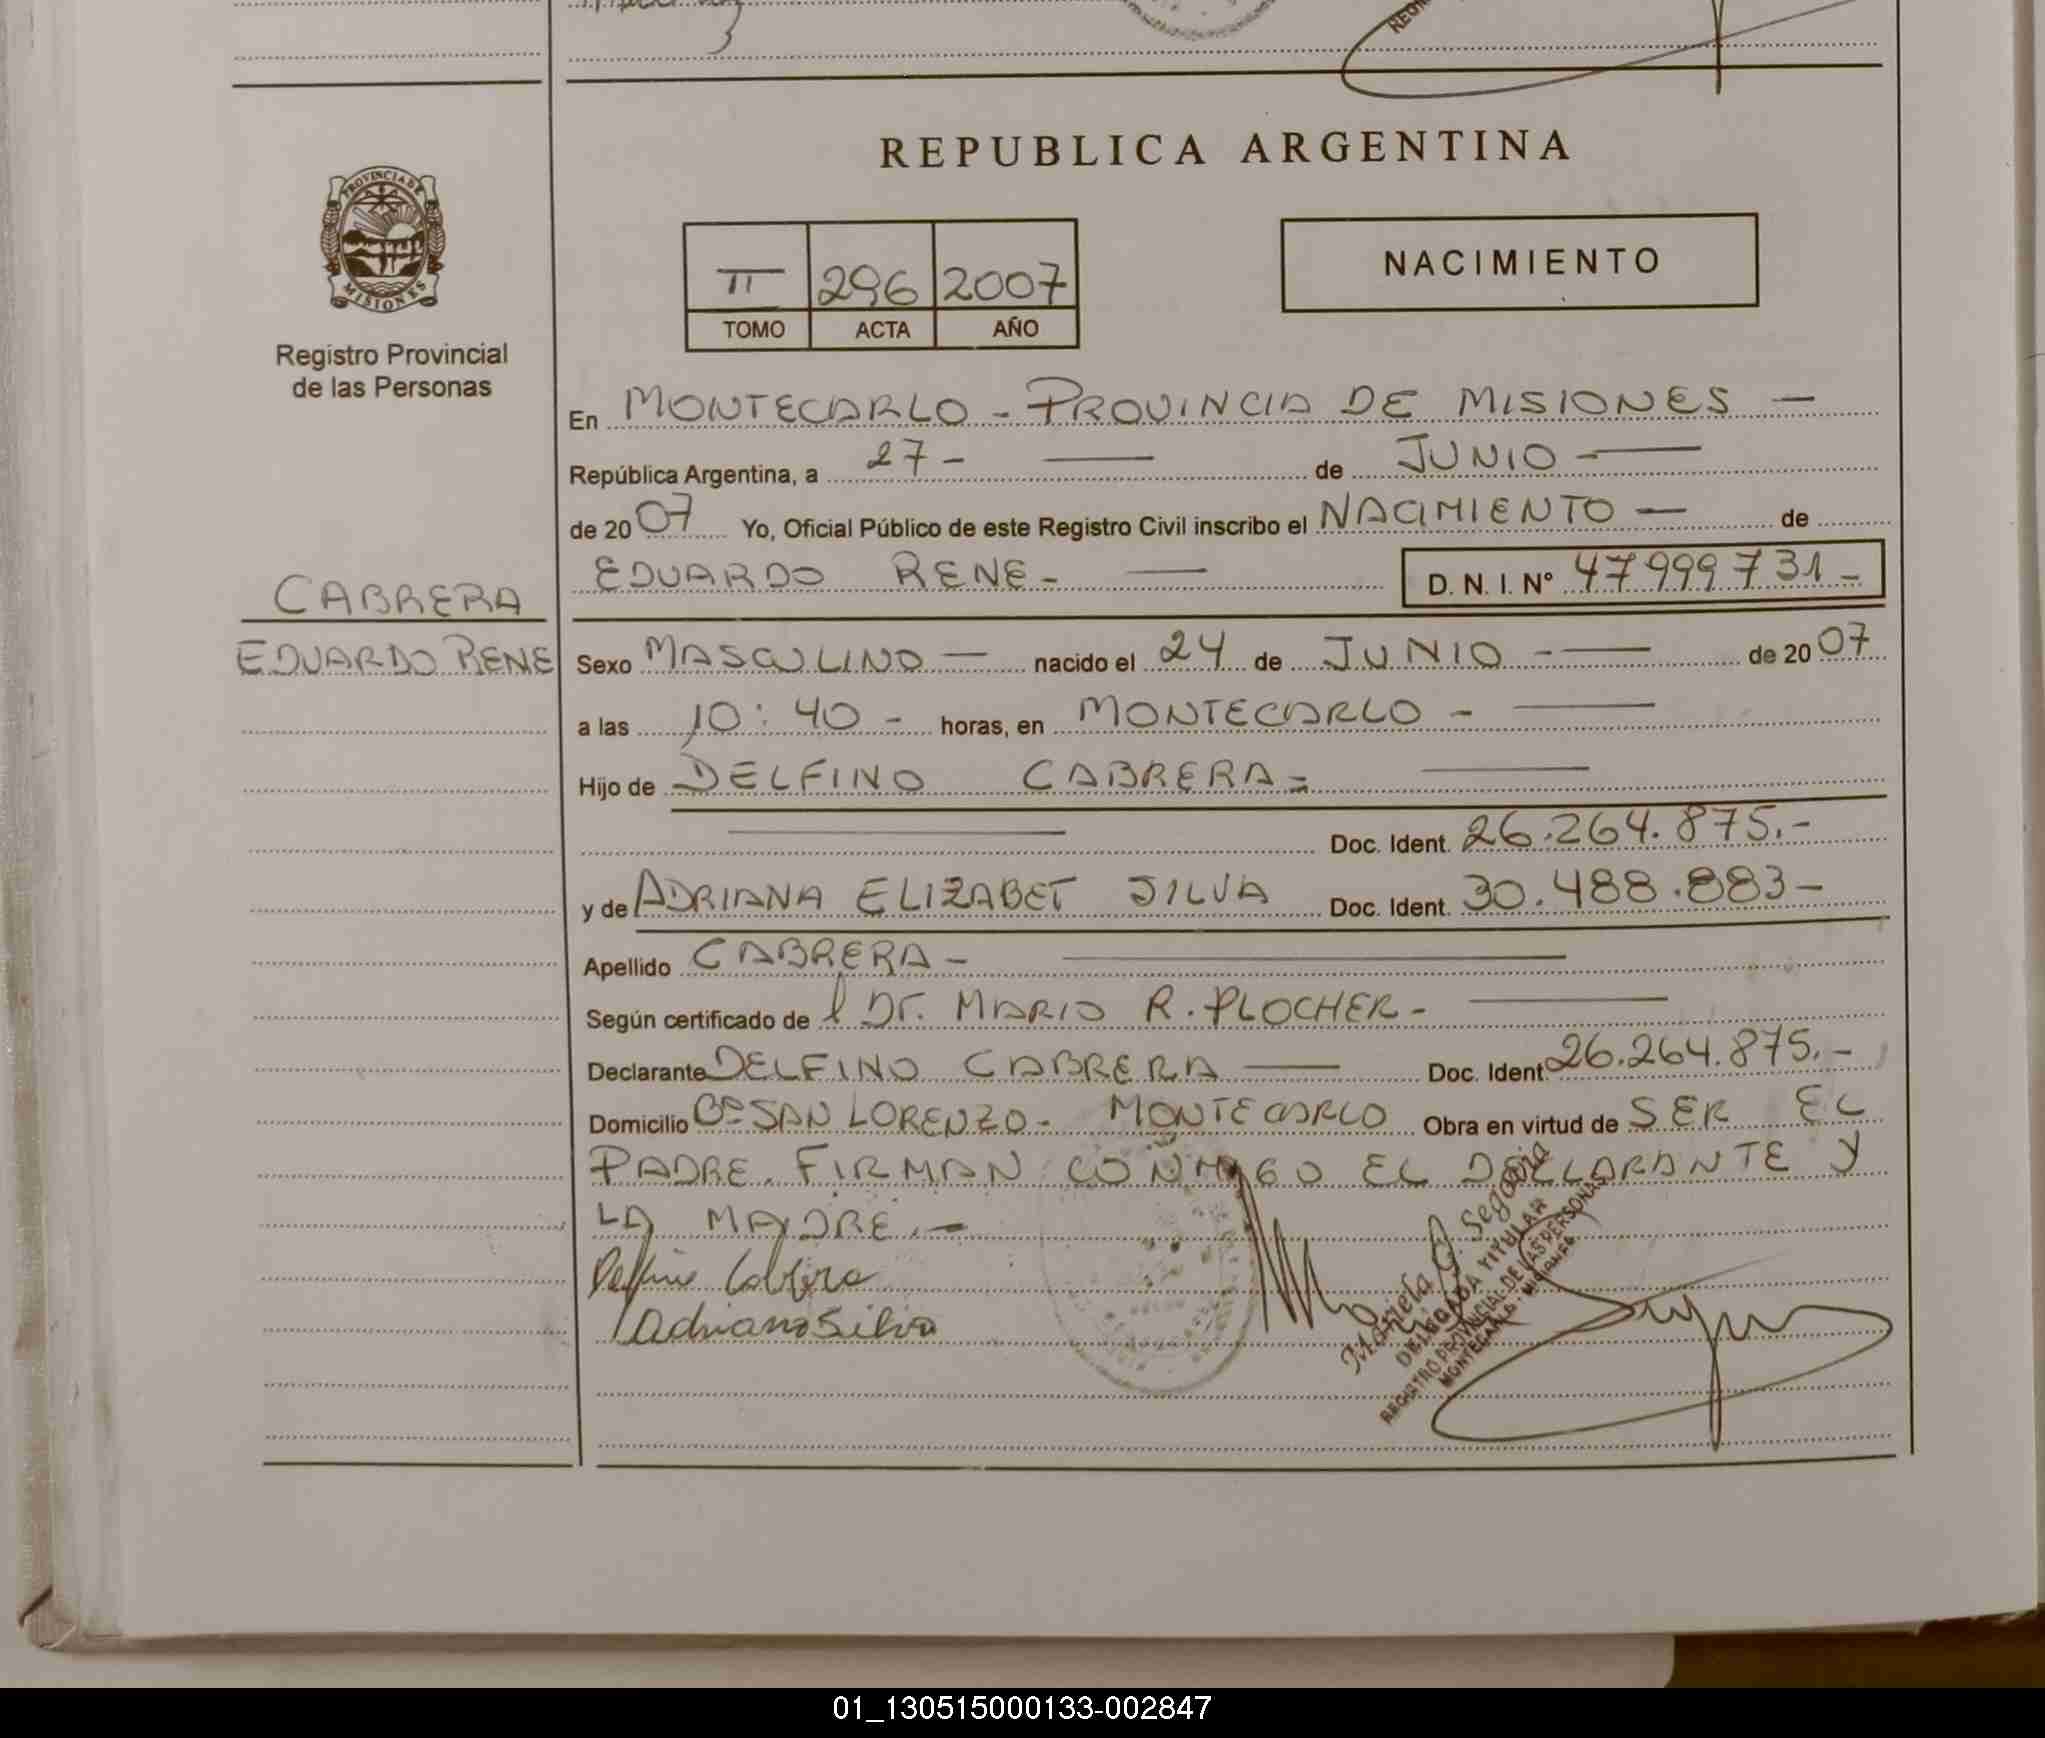 REPUBLICA ARGENTINA
PROVINCIA DE
MISIONES
Registro Provincial
de las Personas
II 296 2007
TOMO ACTA AÑO
NACIMIENTO
En MONTECARLO - PROVINCIA DE MISIONES —
República Argentina, a 27 - — de JUNIO - —
de 2007 Yo, Oficial Público de este Registro Civil inscribo el NACIMIENTO — de
EDUARDO RENE - — D. N. I. Nº 47999731 -
CABRERA
EDUARDO RENE
Sexo MASCULINO — nacido el 24 de JUNIO - — de 2007
a las 10:40 - horas, en MONTECARLO - —
Hijo de DELFINO CABRERA = —
— Doc. Ident. 26.264.875.-
y de ADRIANA ELIZABET SILVA Doc. Ident. 30.488.883 -
Apellido CABRERA - —
Según certificado de l Dr. MARIO R. PLOCHER - —
Declarante DELFINO CABRERA — Doc. Ident. 26.264.875.-
Domicilio Bº SAN LORENZO - MONTECARLO Obra en virtud de SER EL
PADRE. FIRMAN CONMIGO EL DECLARANTE Y
LA MADRE. -
Delfino Cabrera
Adriana Silva
Mariela G. Segovia
DELEGADA TITULAR
REGISTRO PROVINCIAL DE LAS PERSONAS
MONTECARLO - MISIONES
01_130515000133-002847